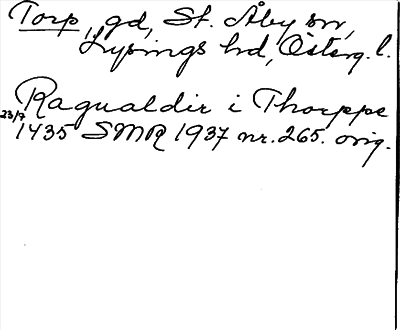 Torp, gd, St. Åby sn,
Lysings hd, Österg. l.
Ragualdir i Thorppe
23/7 1435 SMR 1937 nr. 265. orig.